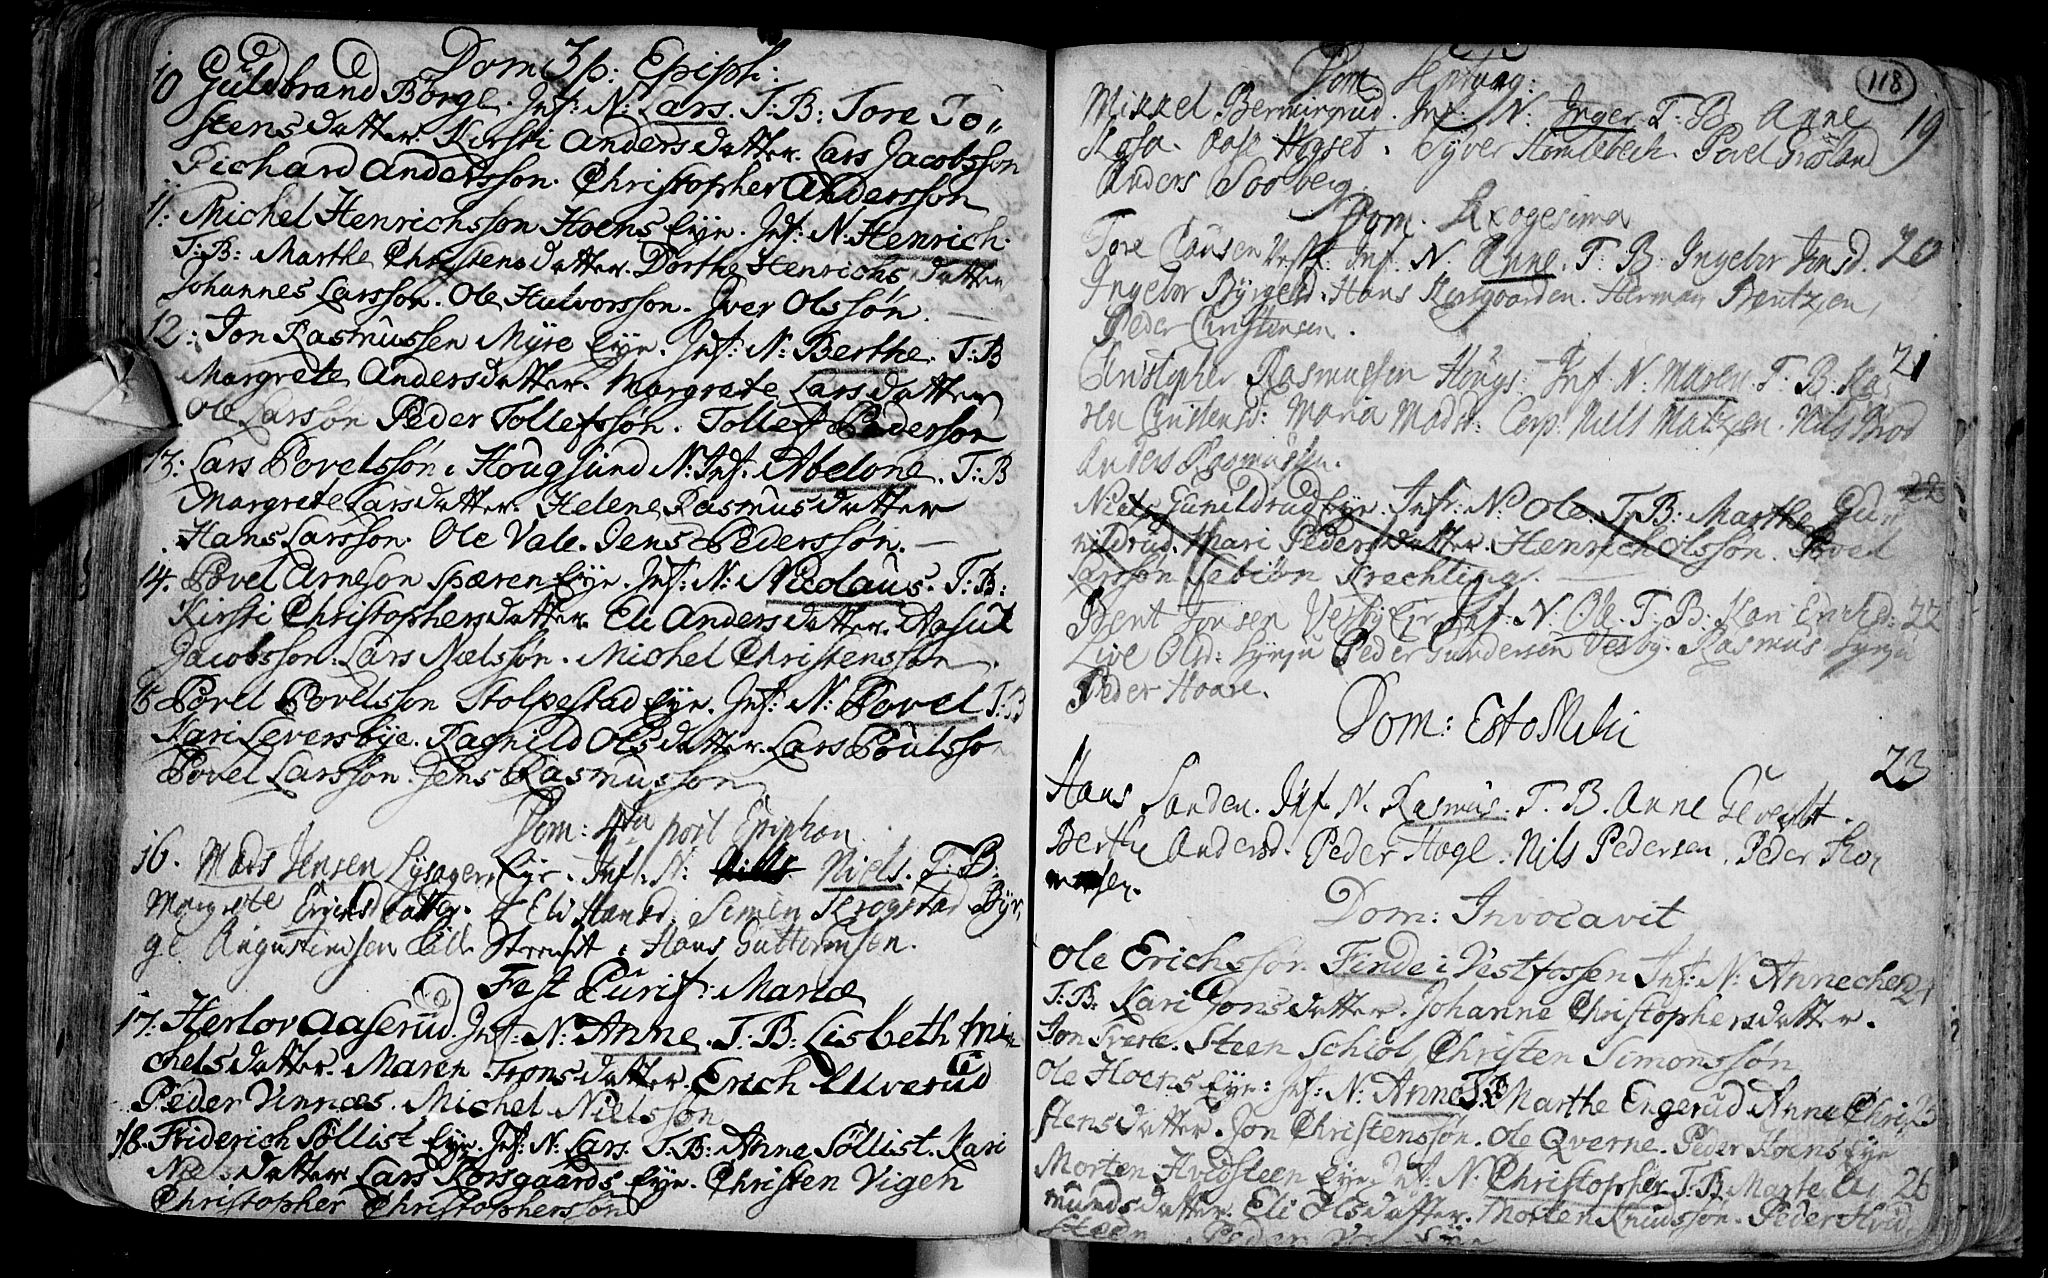 Dom 3 p: Epiph:
10 Guldbrand Børge. Inf: N: Lars. T: B: Tore To,,
stensdatter. Kirsti Andersdatter. Lars Jacobsson
Richard Andersson. Christopher Andersson
11: Michel Henrichsson Hoens Eye. Inf: N: Henrich.
T: B: Marthe Christensdatter. Dorthe Henrichsdatter
Johannes Larsson. Ole Halvorsson. Iver Olssøn.
12: Jon Rasmussen Myre Eye. Inf: N: Berthe. T: B
Margrete Andersdatter. Margrete Larsdatter
Ole Larsson Peder Tollefssøn. Tollef Pederson
13: Lars Povelssøn i Hougsund N: Inf. Abelone. T: B
Margrete Larsdatter. Helene Rasmusdatter
Hans Larsson. Ole Vale. Jens Pederssøn.
14. Povel Arneson Spæren Eye. Inf: N: Nicolaus. T: B:
Kirsti Christophersdatter. Eli Andersdatter. Aasul
Jacobsson. Lars Nielssøn. Michel Christenssøn.
15 Povel Povelsson Stolpestad Eye. Inf: N: Povel T: B
Kari Leversbye. Ragnild Olsdatter. Lars Poulsson
Povel Larsson. Jens Rasmusson
Dom: 4ta post Epiphan
16. Mads Jensen Lysager Eye. Inf: N: Niels. T. B.
Margrete Erichsdatter. Eli Hansd. Simen Skrogstad Byr,
ge Augustinsen Hans Guttormsen.
Fest Purif: Mariæ
17. Herlov Aaserud. Inf: N: Anne. T: B: Lisbeth Mi=
chelsdatter. Maren Tronsdatter. Erich Ulverud
Peder Vinnæs. Michel Nielsson
18. Friderich Søllist Eye. Inf: N. Lars. T: B: Anne Søllist. Kari
Nielsdatter Lars Korsgaards Eye. Christen Vigen
Christopher Christophersson
118
Dom. Septuag:
Mikkel Inf. N: Inger T. B Anne 19
Aase Hogset. Syver Povel
Anders Solberg.
Dom. Sexagesima
Tore Clausen Vestf. Inf. N. Anne. T. B. Ingebor Jonsd. 20
Ingebor Byrgesd. Hans Korsgaarden. Herman Bentzen,
Peder Christensen.
Christopher Rasmussen Hougs. Inf: N: Maren. T. B: Ka= 21
ren Christensd: Maria Madsd: Corp. Niels Matzen. Nils
Anders Rasmussen.
Niels Gunildrud Eye. Inf: N: Ole. T. B: Marthe Gun 22
nildrud. Mari Pedersdatter. Henrich Olssøn. Povel
Larssøn Sebiør Krechling.
Bent Jonsen Vesby Eie Inf: N: Ole. T: B: Kari Erichsd: 22
Live Olsd: Peder Gundersen Vesby. Rasmus
Peder Hoare.
Dom: Esto Mihi
Hans Sanden. Inf. N. Rasmus. T. B. Anne Gevaldt. 23
Berthe Andersd. Peder Hogl. Nils Pedersen. Peder Tho
Dom: Invocavit
Ole Erichssør Finde i Vestfossen Inf: N: Annechen 24
T: B: Kari Jonsdatter. Johanne Christophersdatter.
Jon Steen Schiøl, Christen Simonssøn
Ole Hoens Eye: Inf: N: Anne T: B Marthe Engerud Anne Chri 25
stensdatter. Jon Christenssøn. Ole Qverne. Peder Hoens Eye
Morten Hvidsteen Eye. Inf. N: Christopher T: B: Marte A 26
mundsdatter. Eli Olsdatter. Morten Knudsson. Peder Hvid
steen. Peder